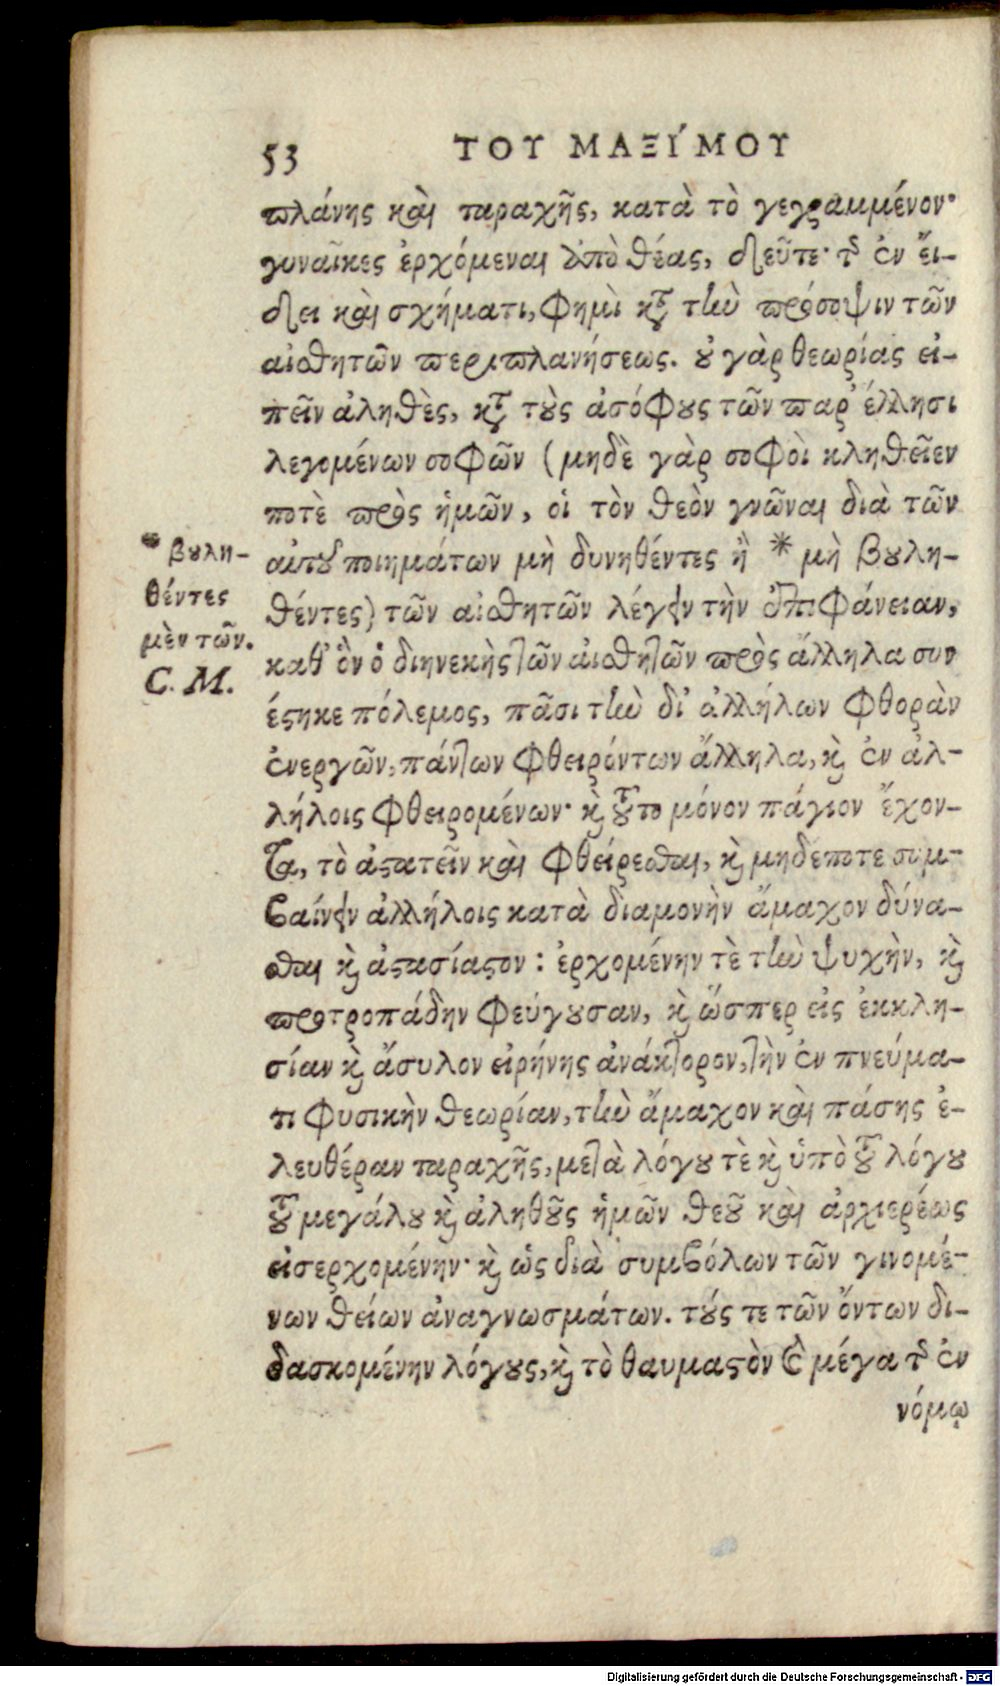 53 ΤΟΥ ΜΑΞΊΜΟΥ
πλάνης καὶ ταραχῆς, κατὰ τὸ γεγραμμένον·
γυναῖκες ἐρχόμεναι ἀπὸ θέας, δεῦτε· τῆς ἐν εἴ-
δει καὶ σχήματι, φημὶ κατὰ τὴν πρόσοψιν τῶν
αἰσθητῶν περιπλανήσεως. οὐ γὰρ θεωρίας εἰ-
πεῖν ἀληθὲς, κατὰ τοὺς ἀσόφους τῶν παρ' ἕλλησι
λεγομένων σοφῶν (μηδὲ γὰρ σοφοὶ κληθεῖεν
ποτὲ πρὸς ἡμῶν, οἱ τὸν θεὸν γνῶναι διὰ τῶν
αὐτοῦ ποιημάτων μὴ δυνηθέντες ἢ * μὴ βουλη-
θέντες) τῶν αἰσθητῶν λέγειν τὴν ἐπιφάνειαν,
καθ' ὃν ὁ διηνεκὴς τῶν αἰσθητῶν πρὸς ἄλληλα συν
έστηκε πόλεμος, πᾶσι τὴν δι' ἀλλήλων φθορὰν
ἐνεργῶν, πάντων φθειρόντων ἄλληλα, καὶ ἐν ἀλ-
λήλοις φθειρομένων· καὶ τοῦτο μόνον πάγιον ἔχον-
τα, τὸ ἀστατεῖν καὶ φθείρεσθαι, καὶ μηδέποτε συμ-
βαίνειν ἀλλήλοις κατὰ διαμονὴν ἄμαχον δύνα-
σθαι καὶ ἀστασίαστον : ἐρχομένην τὲ τὴν ψυχὴν, καὶ
προτροπάδην φεύγουσαν, καὶ ὥσπερ εἰς ἐκκλη-
σίαν καὶ ἄσυλον εἰρήνης ἀνάκτορον, τὴν ἐν πνεύμα-
τι φυσικὴν θεωρίαν, τὴν ἄμαχον καὶ πάσης ἐ-
λευθέραν ταραχῆς, μετὰ λόγου τὲ καὶ ὑπὸ τοῦ λόγου
τοῦ μεγάλου καὶ ἀληθοῦς ἡμῶν θεοῦ καὶ ἀρχιερέως
εἰσερχομένην· καὶ ὡς διὰ συμβόλων τῶν γινομέ-
νων θείων ἀναγνωσμάτων. τούς τε τῶν ὄντων δι-
δασκομένην λόγους, καὶ τὸ θαυμαστὸν καὶ μέγα τῆς ἐν
νόμῳ
* βουλη-
θέντες
μὲν τῶν.
C. M.
Digitalisierung gefördert durch die Deutsche Forschungsgemeinschaft - DFG